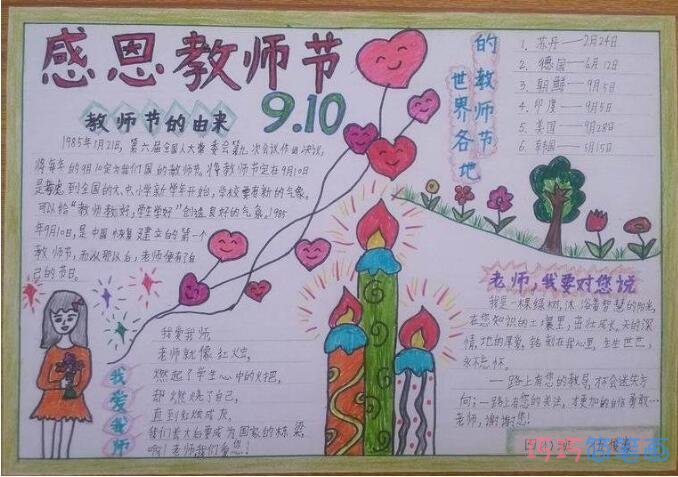 感恩教师节
9.10
教师节的由来
1985年1月21日,第六届全国人大常委会第九次会议作出决议,
将每年的9月10定为我们国的教师节,将教师节定在9月10日
是考虑到全国的大、中、小学新学年开始,学校要有新的气象。
可以给“教师教好,学生学好”创造良好的气氛。1985
年9月10日,是中国恢复建立的第一个
教师节,而从那以后,老师便有了自
己的节日。
世界各地
的教师节
1. 苏丹——2月24日
2. 德国——6月12日
3. 朝鲜——9月5日
4. 印度——9月5日
5. 美国——9月28日
6. 韩国——5月15日
我爱我师
我爱我师,
老师就像红烛,
燃起了学生心中的火把,
却燃烧了自己,
直到红烛成灰,
我们长大后要成为国家的栋梁,
啊!老师我们爱您!
老师,我要对您说
我是一棵绿树,沐浴着智慧的阳光,
在您知识的土壤里,茁壮成长,天的深
情,地的厚爱,铭刻在我心里,生生世世,
永不忘怀。
一路上有您的教导,才会迷失方
向;一路上有您的关注,才更加的自信勇敢…
老师,谢谢您!